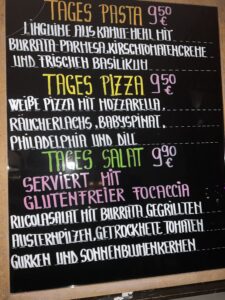 TAGES PASTA 950 €
LINGUINE AUS KAMUT-MEHL MIT
BURRATA-PARMESA, KIRSCHTOMATENCREME
UND FRISCHEN BASILIKUM
TAGES PIZZA 950 €
WEIßE PIZZA MIT MOZZARELLA,
RÄUCHERLACHS, BABYSPINAT,
PHILADELPHIA UND DILL
TAGES SALAT 990 €
SERVIERT MIT
GLUTENFREIER FOCACCIA
RUCOLASALAT MIT BURRATA, GEGRILLTEN
AUSTERNPILZEN, GETROCKETE TOMATEN
GURKEN UND SONNENBLUMENKERNEN